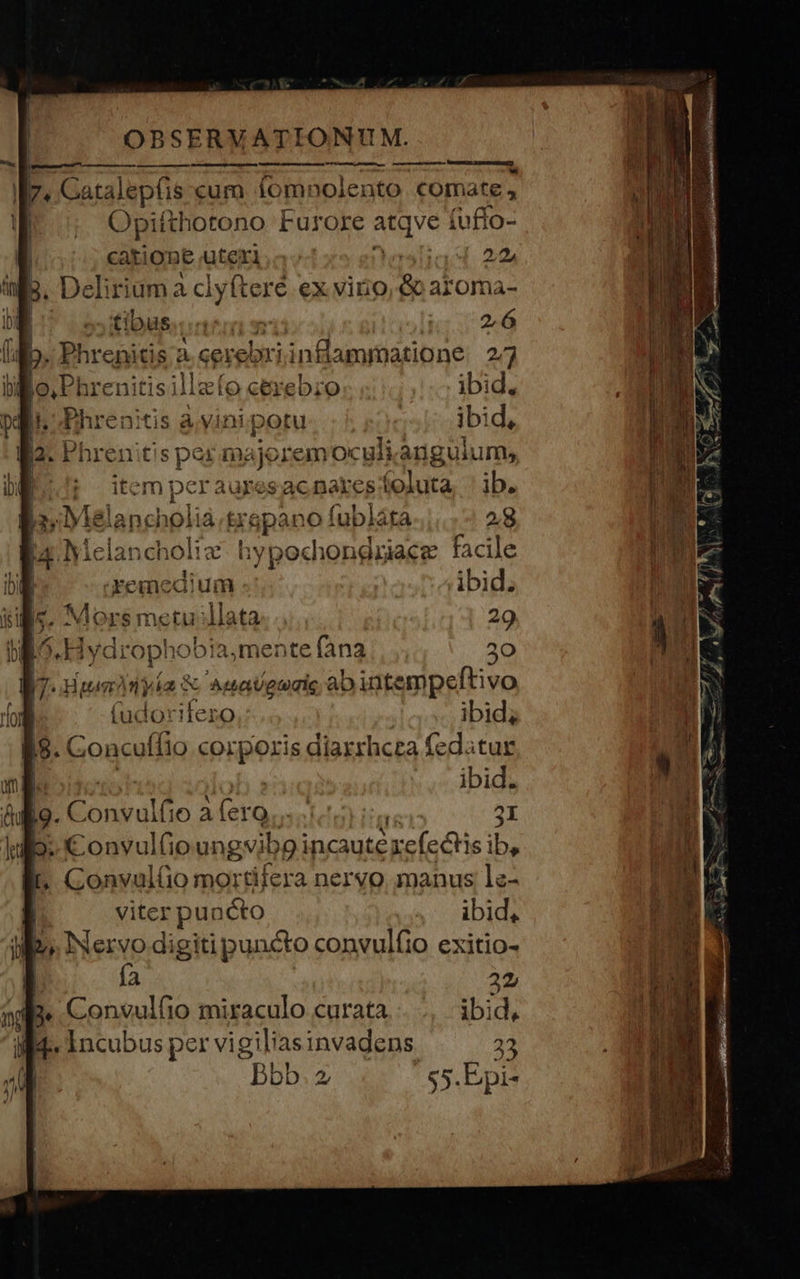 OBSERVATIONUM.
7. Catalepſis cum ſomnolento comate,
Opiſthotono Furore atqve ſuffo-
catione uteri 22
8. Delirium à clyſtere ex vino, & aroma-
tibus 26
9. Phrenitis à cerebri inflammatione 27
10. Phrenitis illæſo cerebro ibid.
11. Phrenitis à vini potu ibid.
12. Phrenitis per majorem oculi angulum,
item per aures ac nares ſoluta ib.
13. Melancholia trepano ſublata 28
14 Melancholiæ hypochondriacæ facile
remedium ibid.
15. Mors metu illata 29
16. Hydrophobia, mente ſana 30
17. Ημιπληγία & Ἀμαύρωσις ab intempeſtivo
ſudorifero, ibid,
18. Concuſſio corporis diarrhœa ſedatur
ibid.
19. Convulſio à ſero 31
20. Convulſio ungvibꝰ incautè reſectis ib,
21. Convulſio mortifera nervo manus le-
viter puncto ibid,
22. Nervo digiti puncto convulſio exitio-
ſa 32
23. Convulſio miraculo curata ibid,
24. Incubus per vigilias invadens 33
Bbb 2 55. Epi-